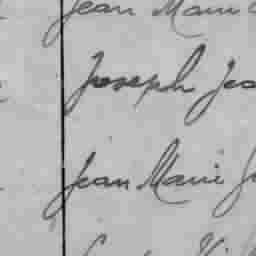 Jean Marie
Joseph Jea
Jean Marie J